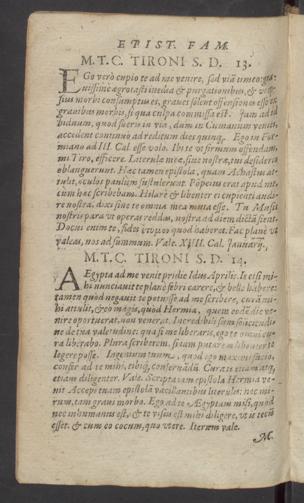 EPIST. FAM.
M. T. C. TIRONI S. D. 13.
EGo verò cupio te ad me venire, sed viā timeo: gra-
uissimè ægrotasti: inedia & purgationibus, & vi
ipsius morbi consumptus es, graues solent offensiones esse ex
grauibus morbis, si qua culpa commissa est. Iam ad id
biduum, quod fueris in via, dum in Cumanum venis,
accedent continuò ad reditum dies quinq. Ego in For-
miano ad III. Cal. esse volo. Ibi te vt firmum offendam,
mi Tiro, effice. Literulæ meæ, siue nostræ, tui desiderio
oblanguerunt. Hac tamen epistola, quam Acastus at-
tulit, oculos paulùm sustulerunt. Pompeius erat apud me,
cùm hæc scribebam. Hilarè & libenter ei cupienti audi-
re nostra, dixi sine te omnia mea muta esse. Tu Musis
nostris para vt operas reddas, nostra ad diem dictā fient.
Docui enim te, fides quod haberet. Fac planè vt
valeas, nos adsumus. Vale. XIIII. Cal. Ianuarij.
M. T. C. TIRONI S. D. 14.
AEgypta ad me venit pridie Idus Aprilis. Is etsi mi-
hi nunciauit te planè febri carere, & bellè habere:
tamen quòd negauit te potuisse ad me scribere, curā mi-
hi attulit, & eò magis, quòd Hermia, quem eodē die ve-
nire oportuerat, non venerat. Incredibili sum solicitudi-
ne de tua valetudine: qua si me liberaris, ego te omni cu-
ra liberabo. Plura scriberem, si iam putarem libenter te
legere posse. Ingenium tuum, quod ego maximi facio,
confer ad te mihi, tibiq; conseruādū. Cura te etiam atq;
etiam diligenter. Vale. Scripta iam epistola Hermia ve-
nit. Accepi tuam epistolā vacillantibus literulis: nec mi-
rum, tam graui morbo. Ego ad te Ægyptam misi, quòd
nec inhumanus est, & te visus est mihi diligere, vt is tecū
esset: & cum eo cocum, quo vtere. Iterum vale.
M.